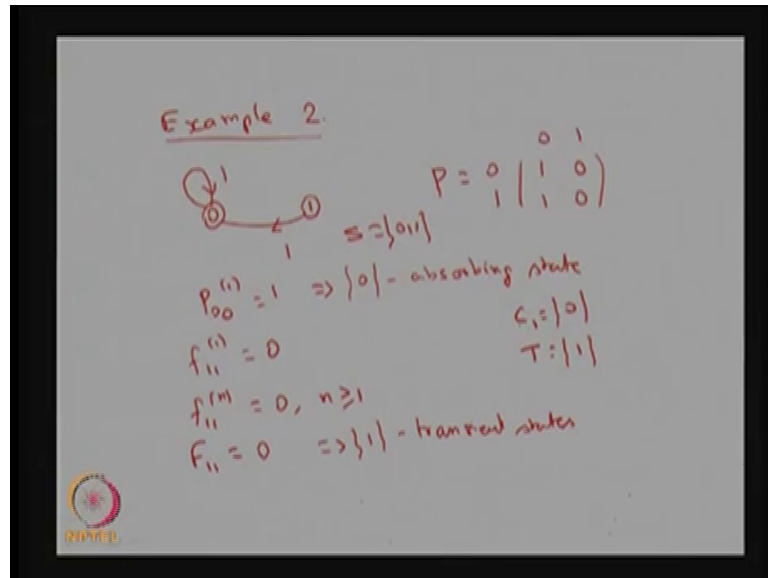 Example 2.
0 1
1
P = 0 ( 1 0 )
1 ( 1 0 )
0 1
1
S = {0,1}
P₀₀⁽¹⁾ = 1 => {0} - absorbing state
f₁₁⁽¹⁾ = 0
C₁ = {0}
f₁₁⁽ⁿ⁾ = 0, n ≥ 1
T = {1}
F₁₁ = 0 => {1} - transient states
NPTEL